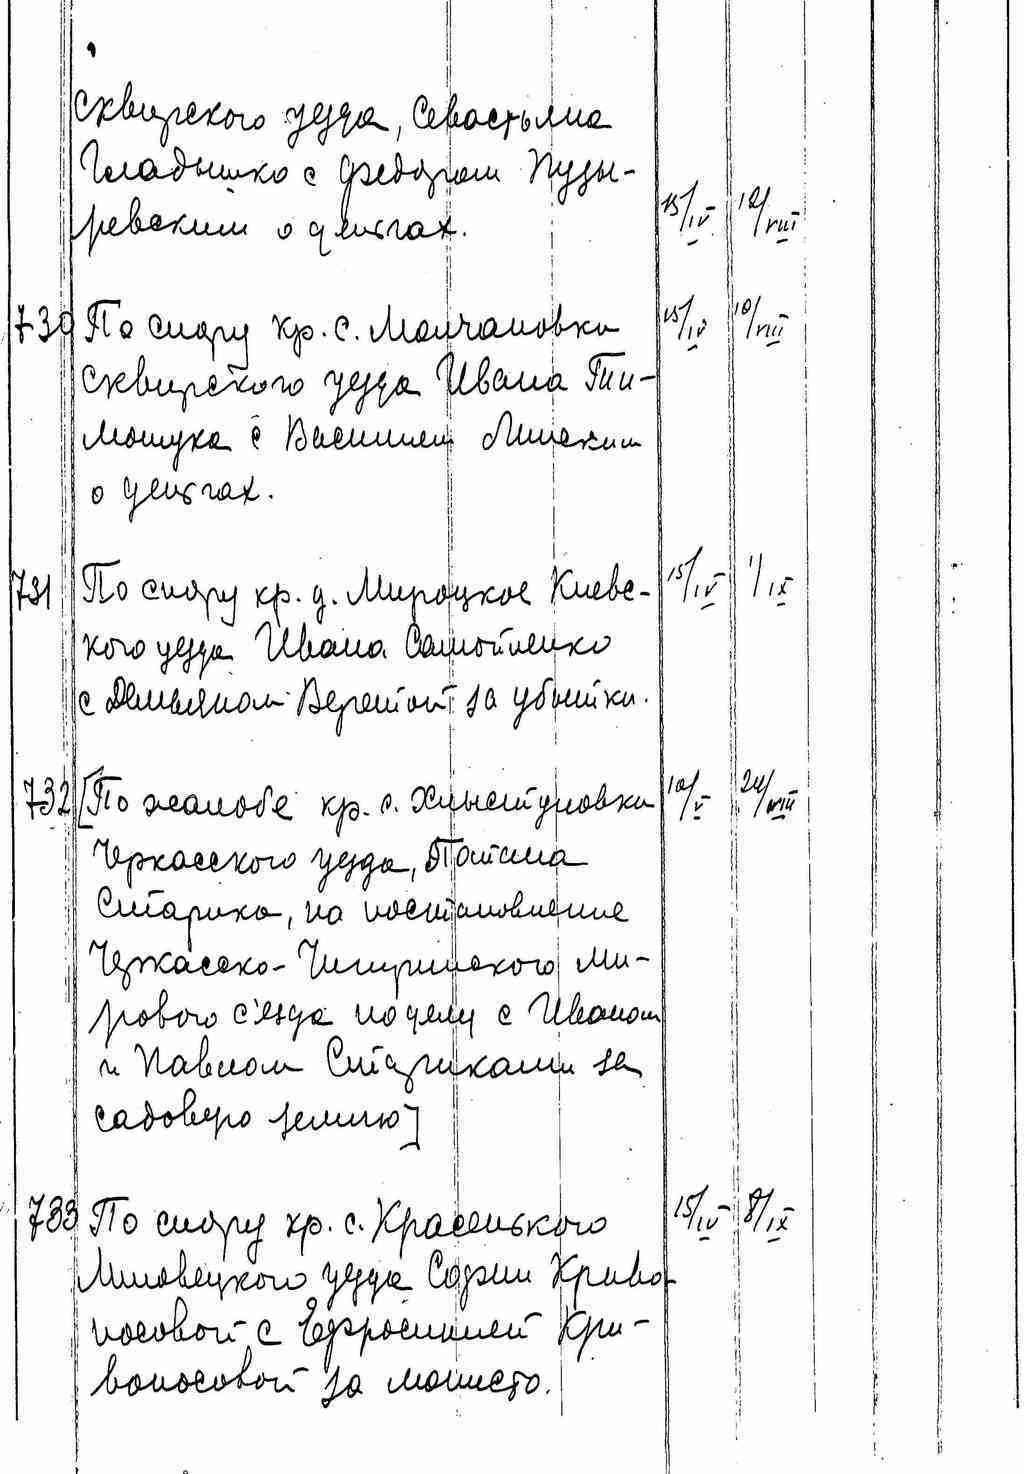 сквирского уезда, Севастьяна
Гладышко с Федором Пузы-
ревским о деньгах. 15/IV 12/VIII
730 По спору кр. с. Молчановки 15/IV 10/VIII
сквирского уезда Ивана Тим-
мошука с Василием Линским
о деньгах.
731 По спору кр. д. Мироцкое Киевс- 15/IV 1/IX
кого уезда Ивана Самойленко
с Демьяном Веремой за убытки.
732 [По жалобе кр. с. Хлыстуновки 10/V 24/VIII
Черкасского уезда, Потапа
Старика, на постановление
Черкасско-Чигиринского ми-
рового с'езда по делу с Иваном
и Павлом Стариками за
садовую землю]
733 По спору кр. с. Красенького 15/IV 8/IX
Липовецкого уезда Софии Криво-
носовой с Ефросинией Кри-
воносовой за монисто.